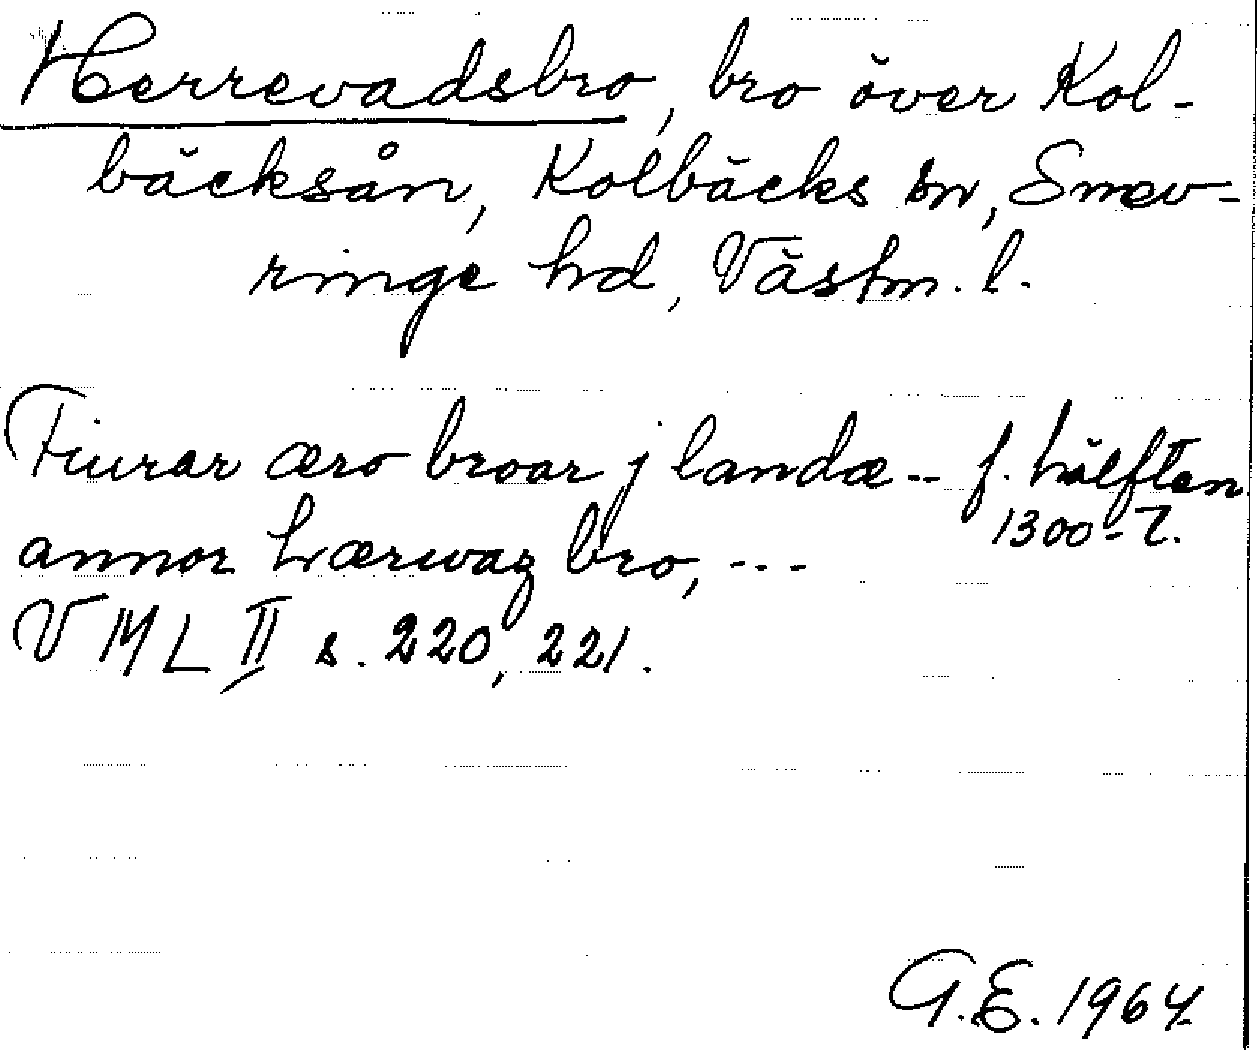 Herrevadsbro, bro över Kol-
bäcksån, Kolbäcks sn, Snev-
ringe hd, Västm. l.
Fiurar æro broar j landæ -- f. hälften
1300-t.
annor hærwaz bro, ---
VML II s. 220, 221.
G.E. 1964.